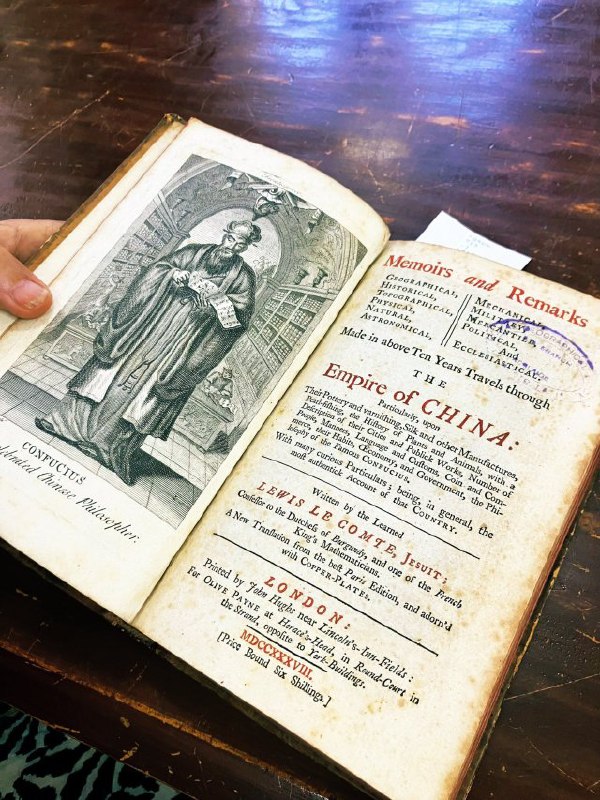 CONFUCIUS.
lebrated Chinese Philosopher.
Memoirs and Remarks
GEOGRAPHICAL,
HISTORICAL,
TOPOGRAPHICAL,
PHYSICAL,
NATURAL,
ASTRONOMICAL,
MECHANICAL,
MILITARY,
MERCANTILE,
POLITICAL,
And
ECCLESIASTICAL.
Made in above Ten Years Travels through
THE
Empire of CHINA:
Particularly, upon
Their Pottery and varniſhing, Silk and other Manufactures,
Pearl-fiſhing, the Hiſtory of Plants and Animals, with a
Deſcription of their Cities and Publick Works, Number of
People, Manners, Language and Cuſtoms, Coin and Com-
merce, their Habits, Œconomy, and Government, the Phi-
loſophy of the Famous CONFUCIUS.
With many curious Particulars; being, in general, the
moſt authentick Account of that COUNTRY.
Written by the Learned
LEWIS LE COMTE, JESUIT;
Confeſſor to the Dutcheſs of Burgundy, and one of the French
King's Mathematicians.
A New Tranſlation from the beſt Paris Edition, and adorn'd
with COPPER-PLATES.
LONDON:
Printed by John Hughs near Lincoln's-Inn-Fields:
For OLIVE PAYNE at Horace's-Head, in Round-Court in
the Strand, oppoſite to York-Buildings.
MDCCXXXVIII.
[Price Bound Six Shillings.]